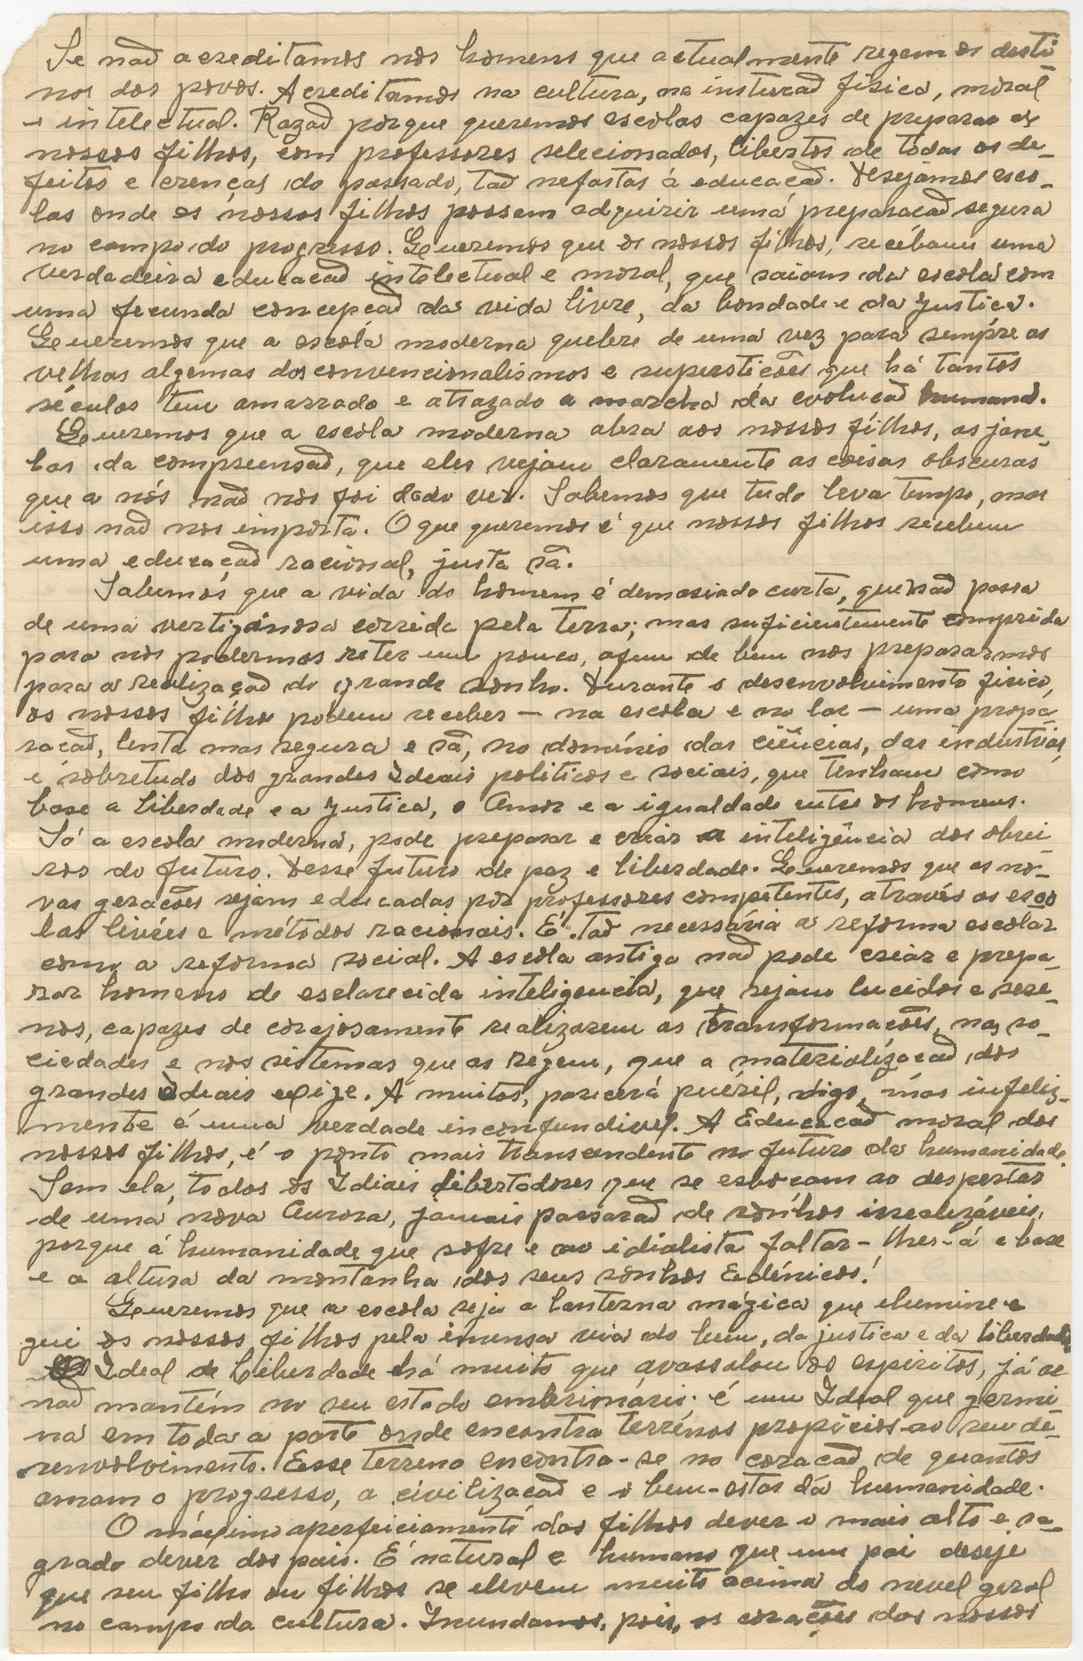 Se naõ acreditamos nos homens que actualmente regem os desti-
nos dos povos. Acreditamos na cultura, na insturaõ fisica, moral
e intelectual. Razaõ porque queremos escolas capazes de preparar os
nossos filhos, com professores selecionados, libertos de todos os de-
feitos e crenças do passado, taõ nefastas á educaçaõ. Desejamos esco-
las onde os nossos filhos possam adquirir uma preparaçaõ segura
no campo do progresso. Queremos que os nossos filhos, recêbam uma
verdadeira educaçaõ intelectual e moral, que saiam da escola com
uma fecunda concepçaõ da vida livre, da bondade e da Justiça.
Queremos que a escola moderna quebre de uma vez para sempre as
velhas algemas dos convencionalismos e superstições que há tantos
séculos tem amarrado e atrazado a marcha da evoluçaõ humana.
Queremos que a escola moderna abra aos nossos filhos, as jane-
las da compreensaõ, que eles vejam claramente as coisas obscuras
que a nós naõ nos foi dado ver. Sabemos que tudo leva tempo, mas
isso naõ nos importa. O que queremos é que nossos filhos recebam
uma educaçaõ racional, justa sã.
Sabemos que a vida do homem é demasiado curta, que naõ passa
de uma vertiginosa corrida pela terra; mas suficientemente comprida
para nos podermos reter um pouco, afim de bem nos prepararmos
para a realizaçaõ do grande sonho. Durante o desenvolvimento fisico,
os nossos filhos podem receber — na escola e no lar — uma prepa-
raçaõ, lenta mas segura e sã, no domínio das ciências, das industrias,
e sobretudo dos grandes Ideais politicos e sociais, que tenham como
base a liberdade e a Justiça, o Amor e a igualdade entre os homens.
Só a escola moderna, pode preparar e criar a inteligência dos obrei-
ros do futuro. Desse futuro de paz e liberdade. Queremos que as no-
vas gerações sejam educadas por professores competentes, através as esco
las livres e métodos racionais. É taõ necessária a reforma escolar
como a reforma social. A escola antiga naõ pode criar e prepa-
rar homens de esclarecida inteligencia, que sejam lucidos e sere-
nos, capazes de corajosamente realizarem as transformações, nas so-
ciedades e nos sistemas que as regem, que a materializaçaõ dos
grandes Ideais exige. A muitos, parecerá pueril, digo, mas infeliz-
mente é uma verdade inconfundivel. A Educaçaõ moral dos
nossos filhos, é o ponto mais transcendente no futuro da humanidade.
Sem ela, todos os Idiais libertadores que se esboçam ao despertar
de uma nova Aurora, jamais passaraõ de sonhos irrealizáveis,
porque á humanidade que sofre e ao idialista faltar-lhes-á a base
e a altura da montanha dos seus sonhos Edénicos!
Queremos que a escola seja a lanterna mágica que ilumine e
gui os nossos filhos pela imensa via do bem, da justiça e da liberdade
Ideal de Liberdade há muito que avassalou os espiritos, já se
naõ mantém no seu estado embrionário; é um Ideal que germi-
na em toda a parte onde encontra terrenos propícios ao seu de-
senvolvimento. Esse terreno encontra-se no coraçaõ de quantos
amam o progresso, a civilizaçaõ e o bem-estar da humanidade.
O máximo aperfeiciamento dos filhos dever o mais alto e sa-
grado dever dos pais. É natural e humano que um pai deseje
que seu filho ou filhos se elevem muito acima do nevel geral
no campo da cultura. Inundamos, pois, os corações dos nossos